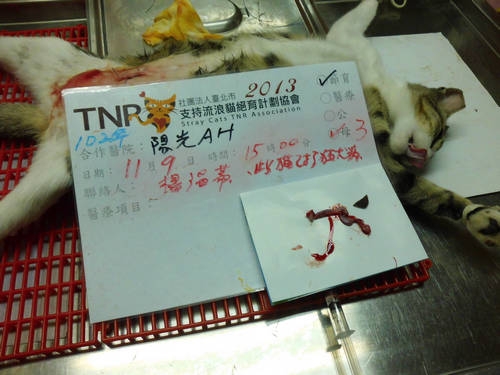 TNR 社團法人臺北市 2013
支持流浪貓絕育計劃協會
Stray Cats TNR Association
102年
合作醫院：陽光AH
日期：11月9日．時間：15時00分
聯絡人：
醫療項目
✓絕育
○醫療
○公
○母 3